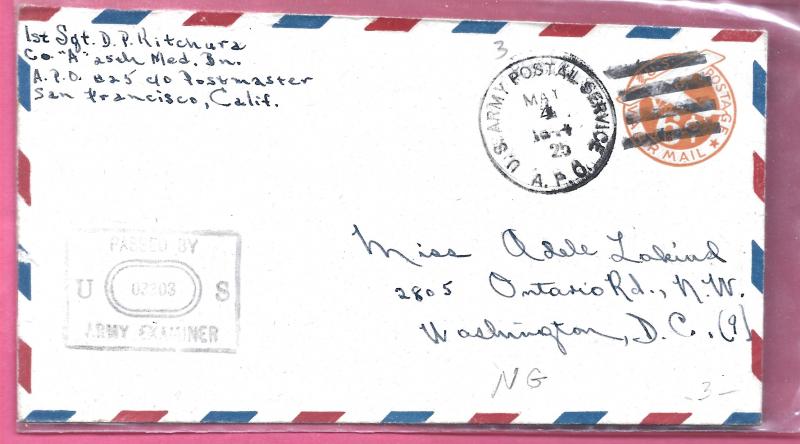 1st Sgt. D. P. Kitchura
Co "A" 25th Med. Bn.
A.P.O. #25 c/o Postmaster
San Francisco, Calif.
3
U.S. ARMY POSTAL SERVICE
MAY
4
25
A.P.O.
POSTAGE
6¢
AIR MAIL
PASSED BY
U S
ARMY EXAMINER
Miss Adele Lakind
2805 Ontario Rd., N.W.
Washington, D.C. (9)
NG
3-